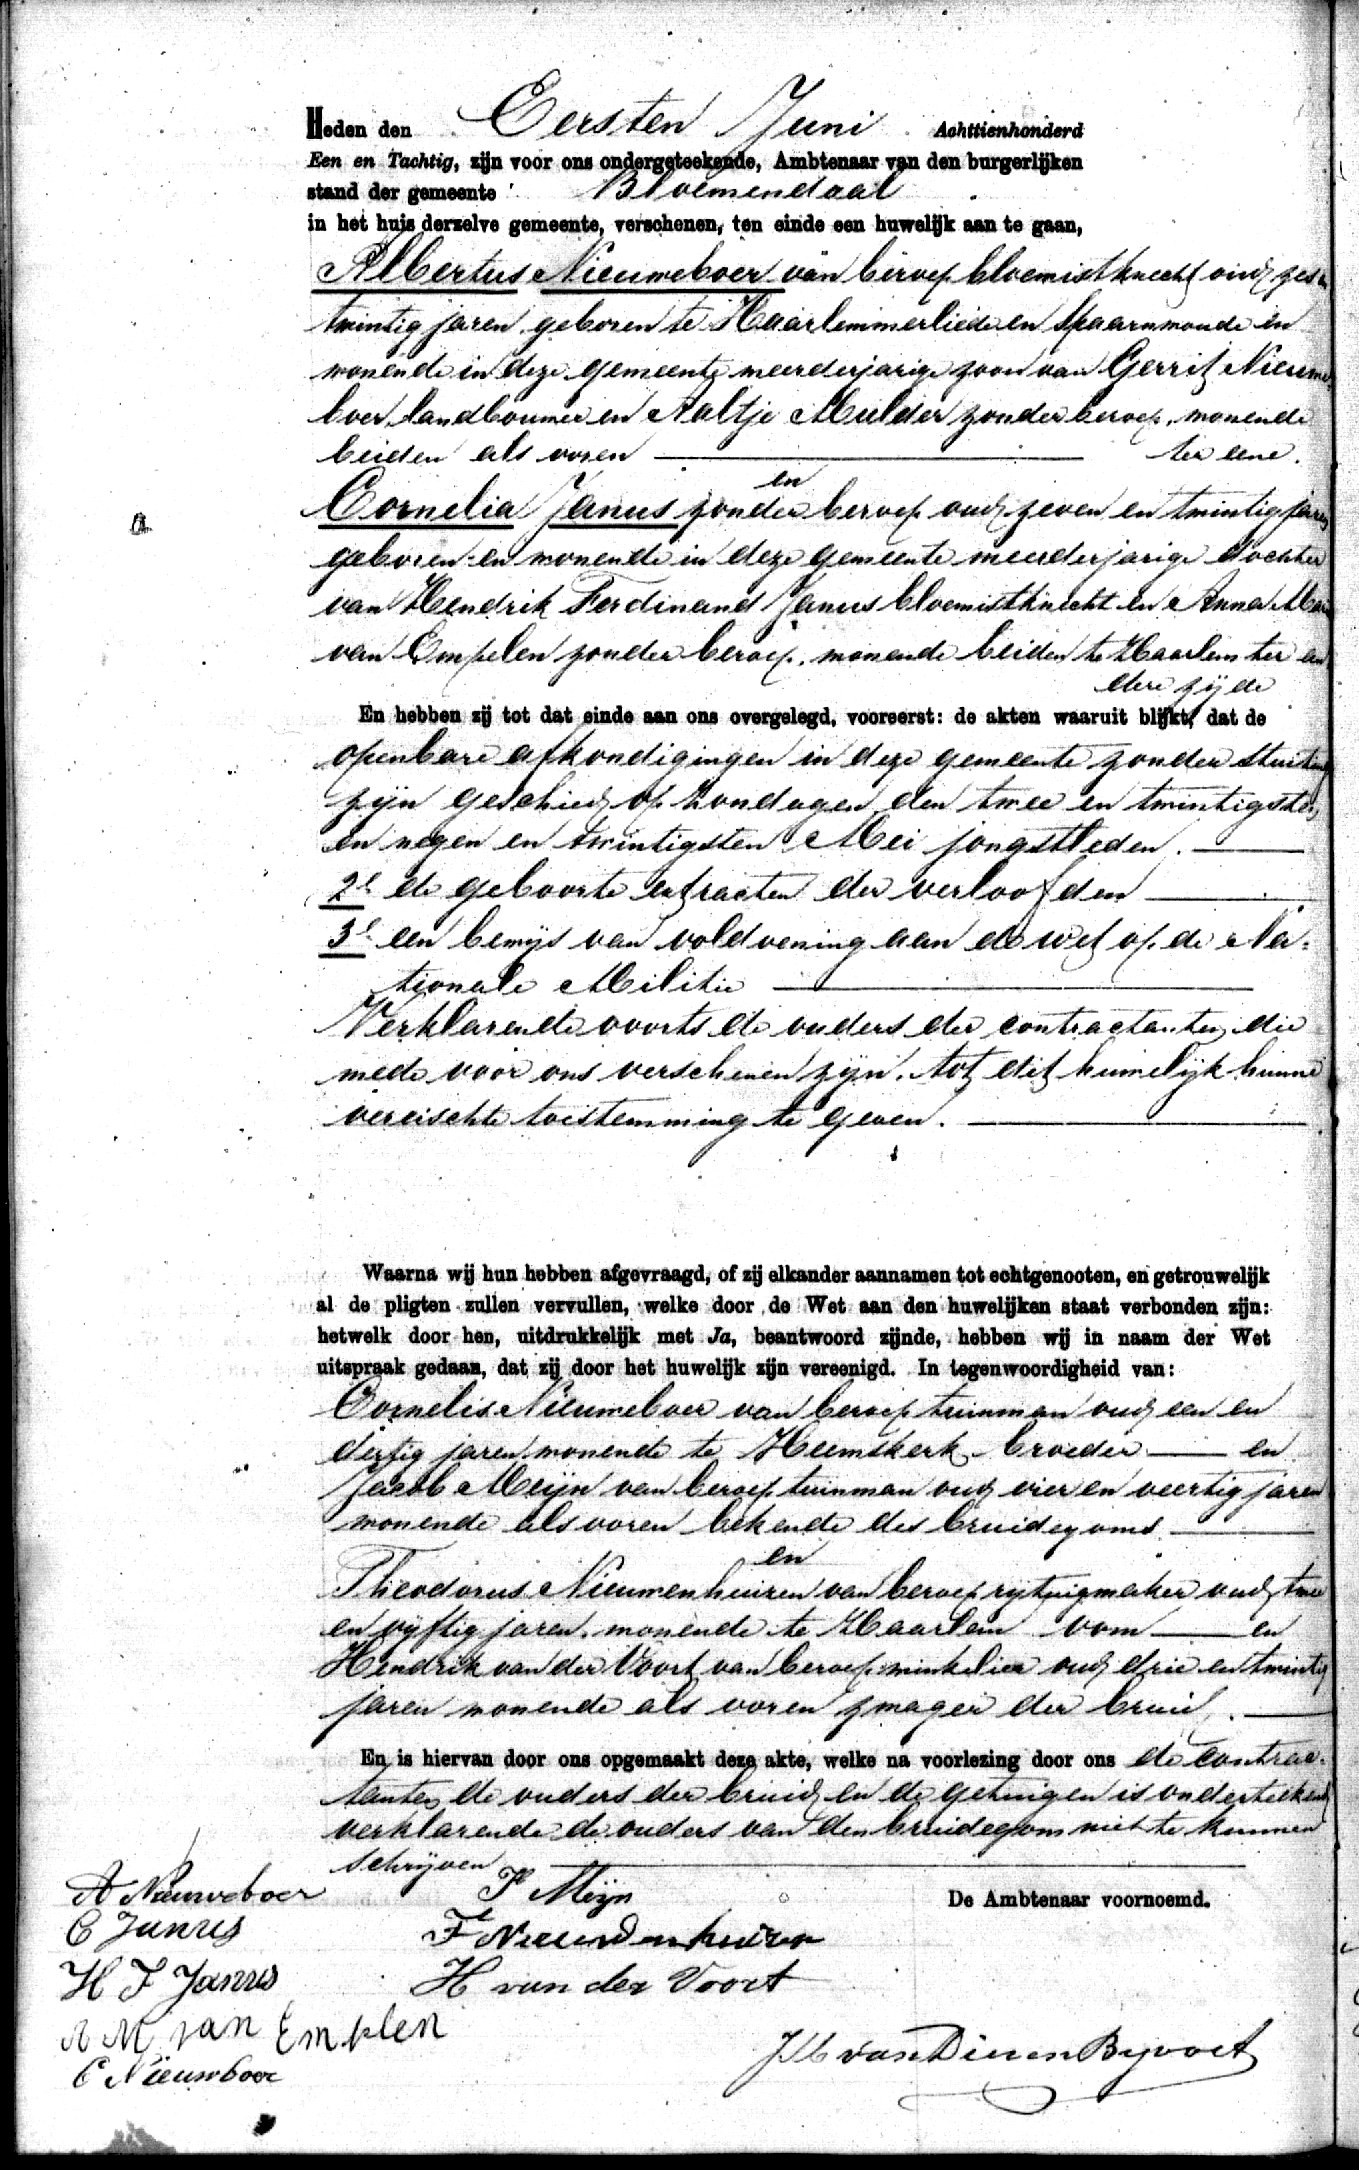 Heden den Eersten Juni Achttienhonderd
Een en Tachtig, zijn voor ons ondergeteekende, Ambtenaar van den burgerlijken
stand der gemeente Bloemendaal
in het huis derzelve gemeente, verschenen, ten einde een huwelijk aan te gaan,
Albertus Nieuweboer van beroep bloemistknecht oud zes en
twintig jaren, geboren te Haarlemmerliede en Spaarnwoude en
wonende in deze gemeente meerderjarige zoon van Gerrit Nieuwe
boer, landbouwer en Aaltje Mulder zonder beroep, wonende
beiden als voren ter eene.
en
Cornelia Janus zonder beroep oud zeven en twintig jaren
geboren en wonende in deze gemeente meerderjarige dochter
van Hendrik Ferdinand Janus bloemistknecht en Anna Maria
van Empelen zonder beroep, wonende beiden te Haarlem ter an
dere zijde
En hebben zij tot dat einde aan ons overgelegd, vooreerst: de akten waaruit blijkt, dat de
openbare afkondigingen in deze gemeente zonder stuiting
zijn geschied op Zondagen den twee en twintigsten
en negen en twintigsten Mei jongstleden.
2e de geboorte extracten der verloofden
3e een bewijs van voldoening aan de wet op de Na=
tionale Militie
Verklarende voorts de ouders der contractanten die
mede voor ons verschenen zijn, tot dit huwelijk hunne
vereischte toestemming te geven.
Waarna wij hun hebben afgevraagd, of zij elkander aannamen tot echtgenooten, en getrouwelijk
al de pligten zullen vervullen, welke door de Wet aan den huwelijken staat verbonden zijn:
hetwelk door hen, uitdrukkelijk met Ja, beantwoord zijnde, hebben wij in naam der Wet
uitspraak gedaan, dat zij door het huwelijk zijn vereenigd. In tegenwoordigheid van:
Cornelis Nieuweboer van beroep tuinman oud een en
dertig jaren wonende te Heemskerk broeder en
Jacob Meijn van beroep tuinman oud vier en veertig jaren
wonende als voren bekende des bruidegoms
en
Theodorus Nieuwenhuizen van beroep rijtuigmaker oud twee
en vijftig jaren, wonende te Haarlem oom en
Hendrik van der Voort van beroep winkelier oud drie en twintig
jaren wonende als voren zwager der bruid.
En is hiervan door ons opgemaakt deze akte, welke na voorlezing door ons de contrac-
tanten de ouders der bruid en de getuigen is onderteekend
verklarende de ouders van den bruidegom niet te kunnen
schrijven
A Nieuweboer
C Janus
H F Janus
A M van Emplen
C Nieuwboer
J Meijn
T Nieuwenhuizen
H van der Voort
De Ambtenaar voornoemd.
van Dieren Bijvoet